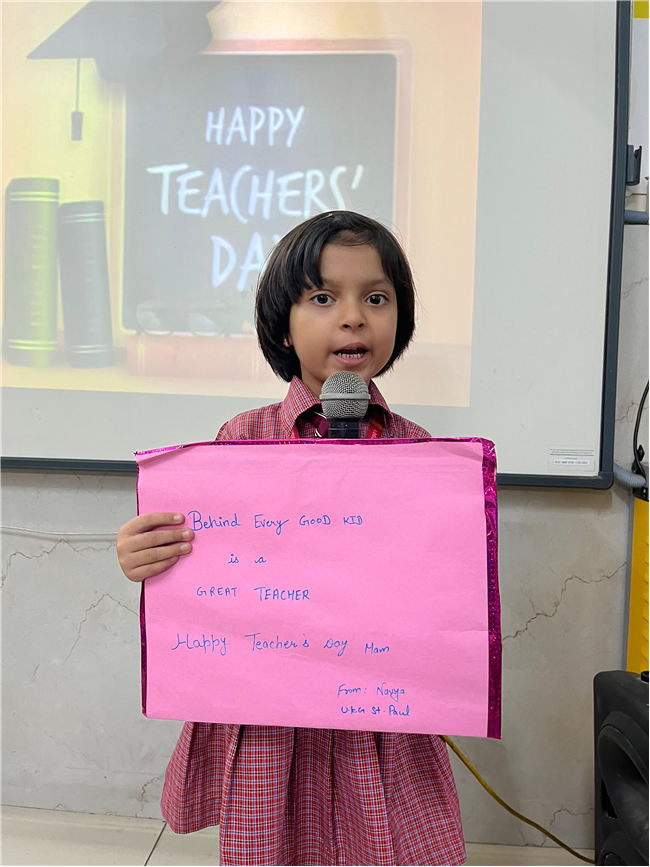 HAPPY
TEACHERS'
DAY
Behind Every GOOD KID
is a
GREAT TEACHER
Happy Teacher's Day Mam
From: Navya
U.K.G St. Paul